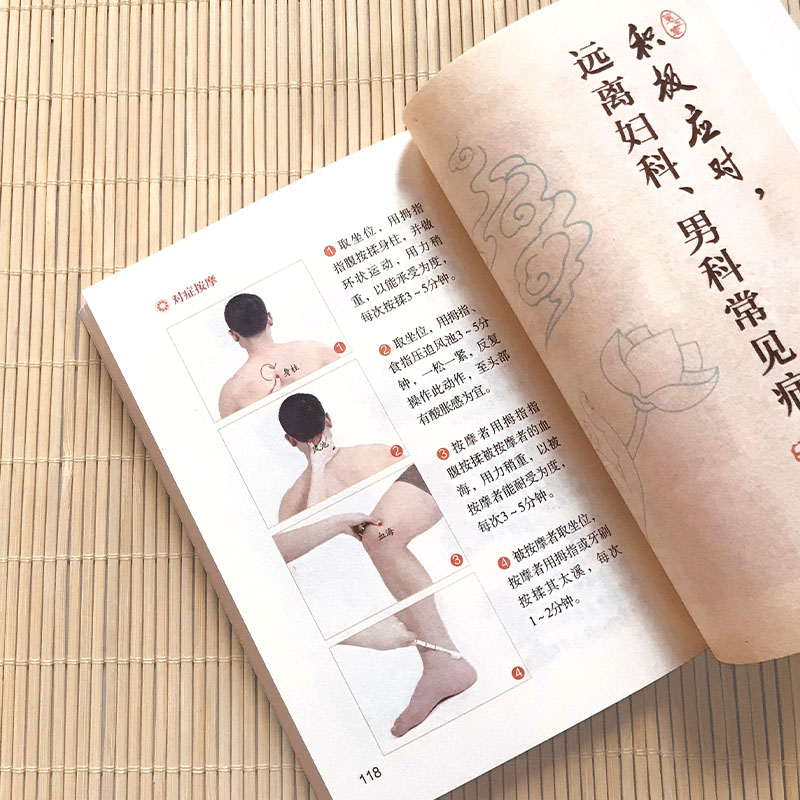 对症按摩
①取坐位，用拇指
指腹按揉身柱，并做
环状运动，用力稍
重，以能承受为度，
每次按揉3～5分钟。
身柱
①
②取坐位，用拇指、
食指压迫风池3～5分
钟，一松一紧，反复
操作此动作，至头部
有酸胀感为宜。
风池
②
③按摩者用拇指指
腹按揉被按摩者的血
海，用力稍重，以被
按摩者能耐受为度，
每次3～5分钟。
血海
③
④被按摩者取坐位，
按摩者用拇指或牙刷
按揉其太溪，每次
1～2分钟。
④
118
积极应对，
远离妇科、男科常见病